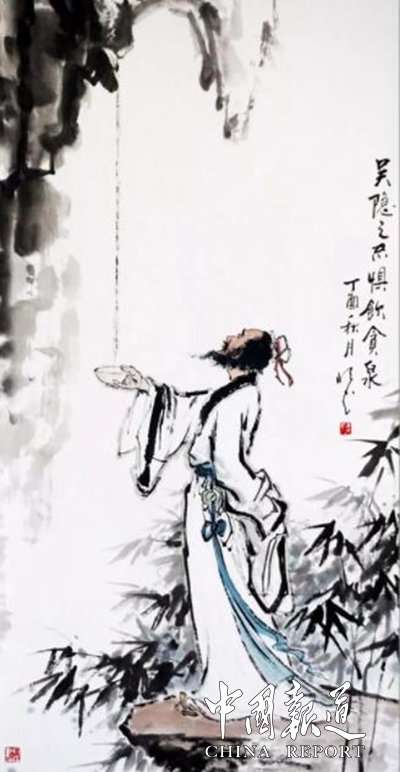 吴隐之不惧飲贪泉
丁酉秋月
中國報道
CHINA REPORT